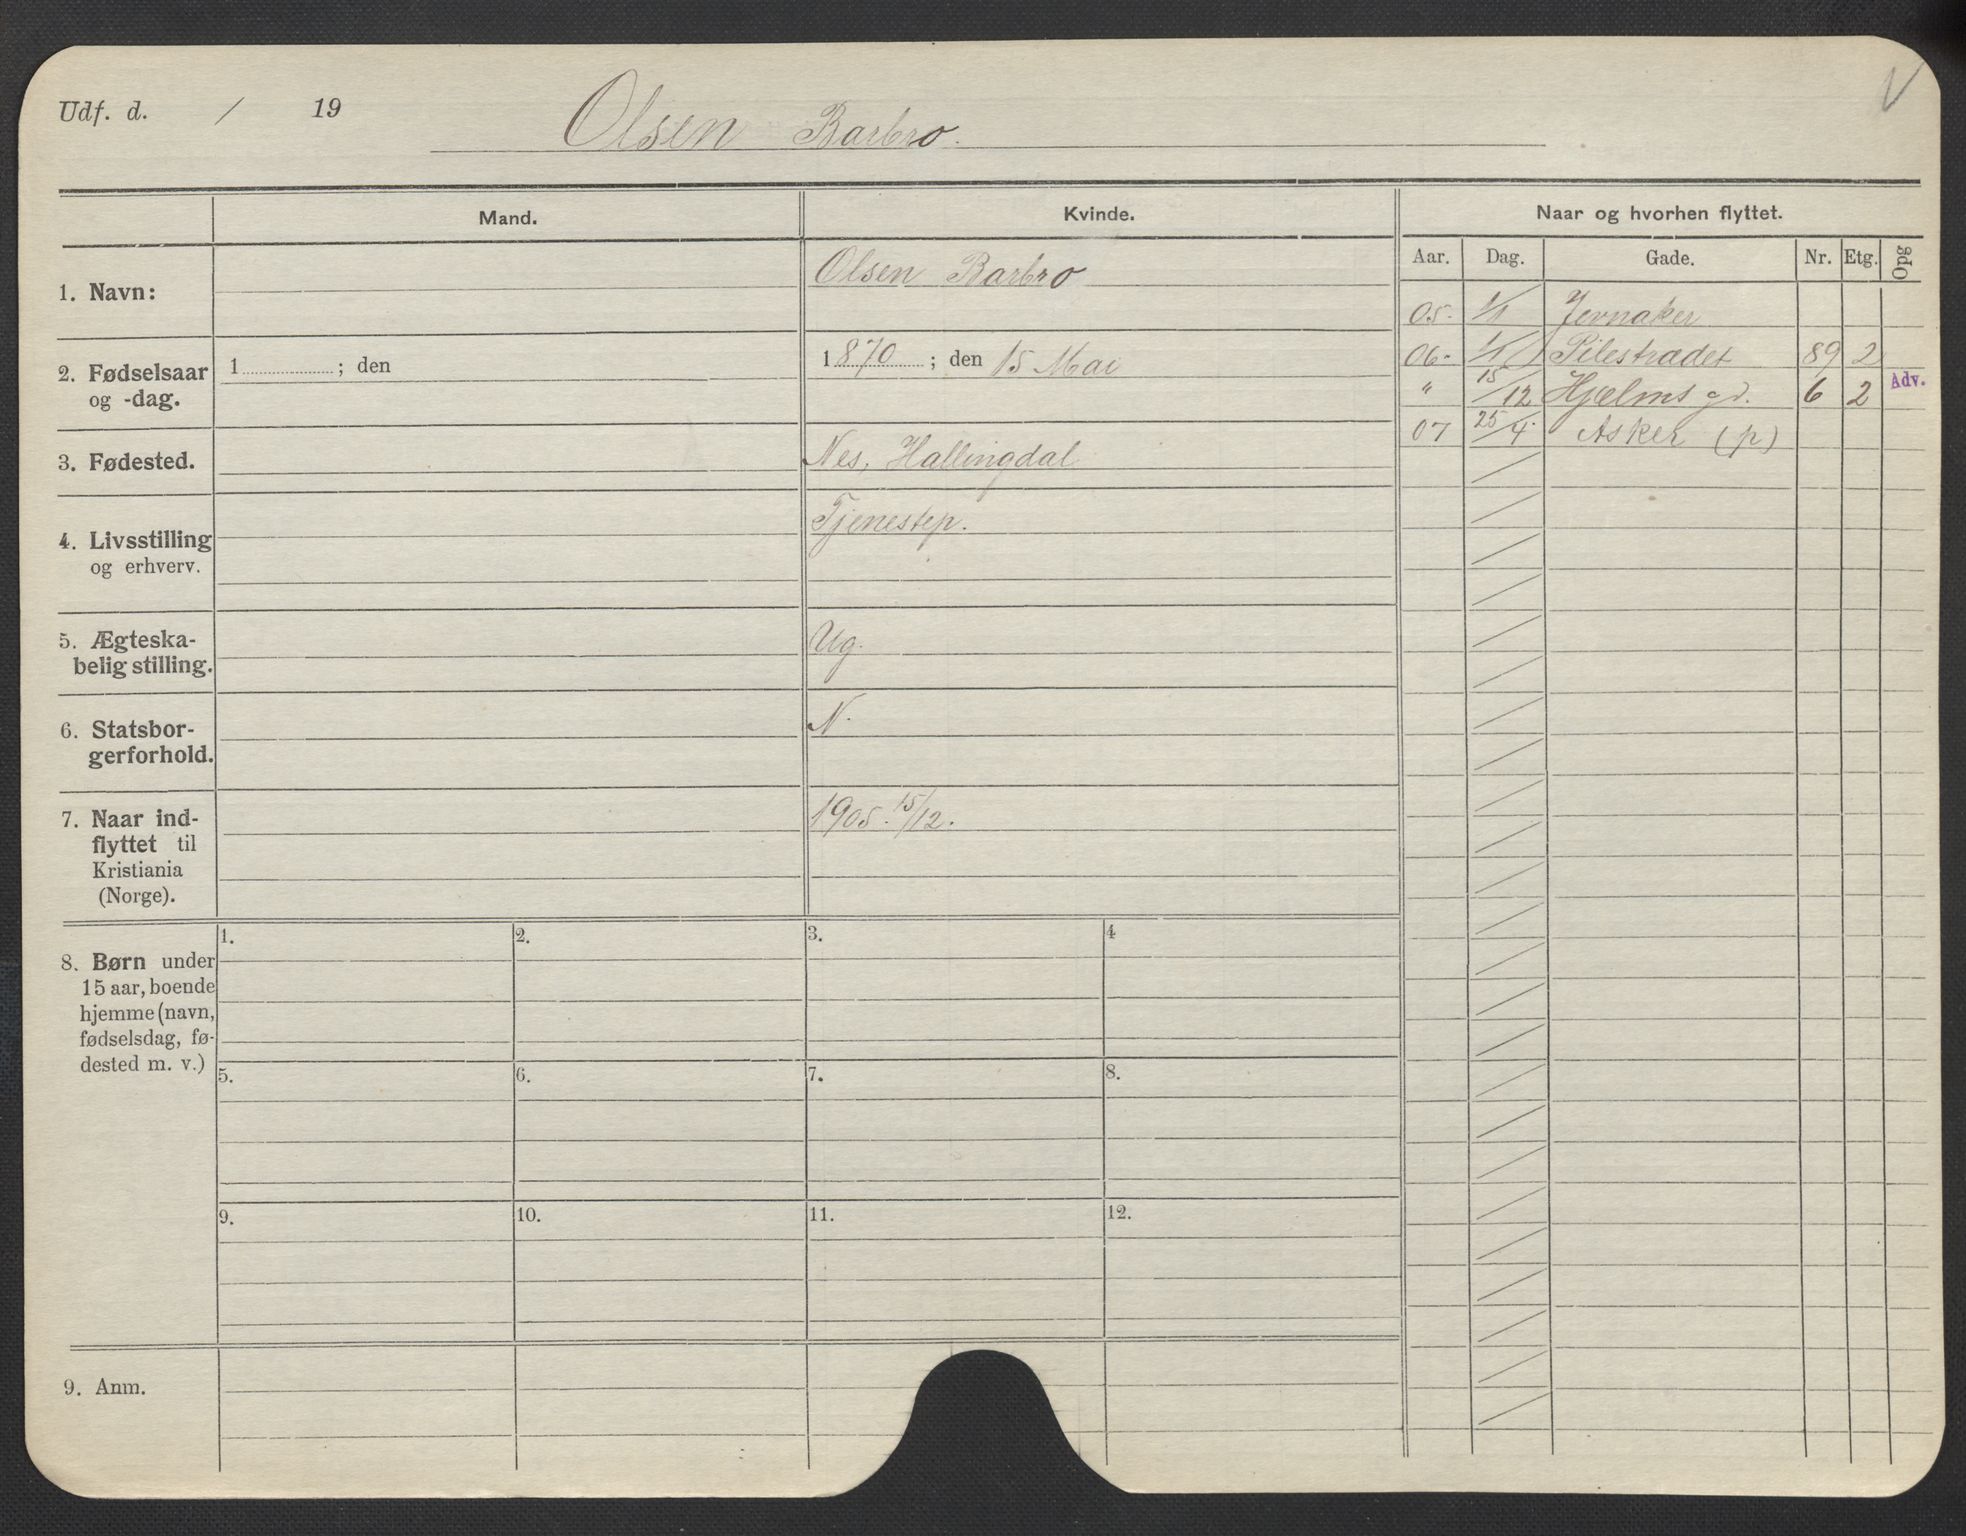 Udf. d. / 19 Olsen Barbro. V
Mand. Kvinde. Naar og hvorhen flyttet.
Aar. Dag. Gade. Nr. Etg. Opg
1. Navn: Olsen Barbro
05. 1/1 Jevnaker
2. Fødselsaar og -dag. 1 ; den 1870 ; den 15 Mai
06- 1/1 Pilestrædet 89 2
" 15/12 Hjelms gd. 6 2 Adv.
07 25/4 Asker (p)
3. Fødested. Nes, Hallingdal
4. Livsstilling og erhverv. Tjenestep.
5. Ægteska-
belig stilling. Ug.
6. Statsbor-
gerforhold. N.
7. Naar ind-
flyttet til
Kristiania
(Norge). 1905. 15/12.
8. Børn under
15 aar, boende
hjemme (navn,
fødselsdag, fø-
dested m. v.)
1. 2. 3. 4
5. 6. 7. 8.
9. 10. 11. 12.
9. Anm.